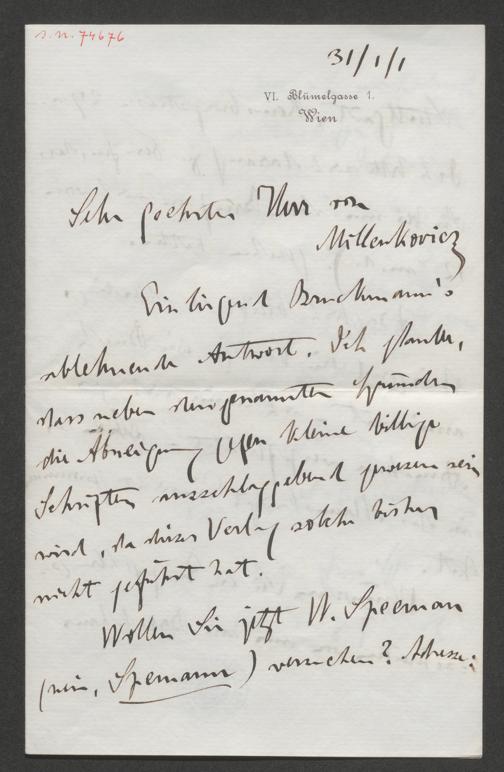 S.n. 74676
31/1/1
VI. Blümelgasse 1.
Wien
Sehr geehrter Herr von
Millenkovicz
Einliegend Bruckmann's
ablehnende Antwort. Ich glaube,
dass neben den genannten Gründen
die Abneigung gegen kleine billige
Schriften ausschlaggebend gewesen sein
wird, da dieser Verlag solche bisher
nicht geführt hat.
Wollen Sie jetzt W. Speeman
(nein, Spemann) versuchen? Adresse: